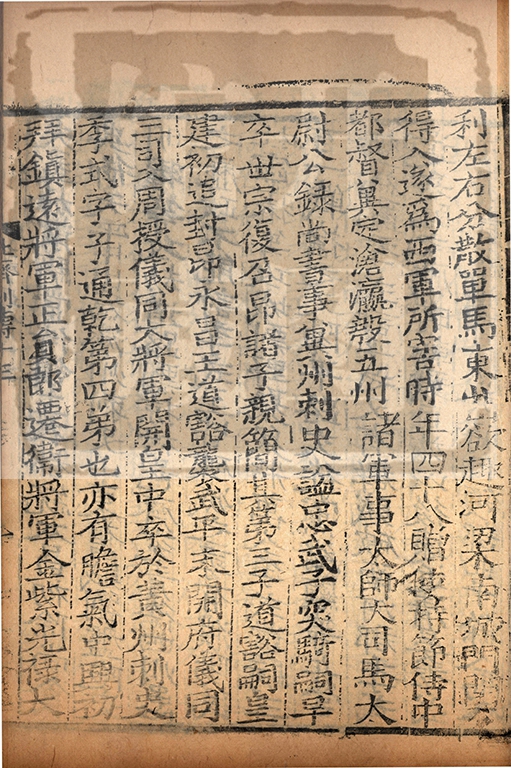 利左右分散單馬東出欲趣河梁南城門閉不
得入遂為西軍所害時年四十八贈使持節侍中
都督冀定滄瀛殷五州諸軍事太師大司馬太
尉公錄尚書事冀州刺史謚忠武子突騎嗣早
卒世宗復召昂諸子親簡其第三子道豁嗣皇
建初追封昂永昌王道豁襲武平末開府儀同
三司入周授儀同大將軍開皇中卒於黃州刺史
季式字子通乾第四弟也亦有膽氣中興初
拜鎮遠將軍正員郎遷衛將軍金紫光祿大
列傳十三